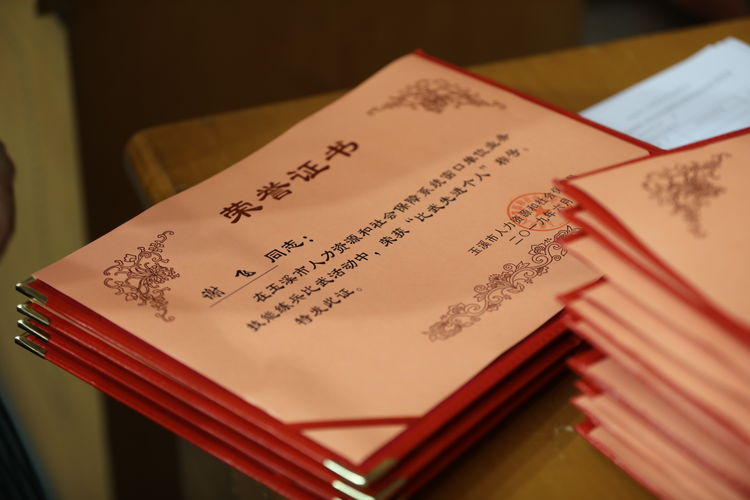 荣誉证书
谢飞 同志：
在玉溪市人力资源和社会保障系统窗口单位业务
技能练兵比武活动中，荣获“比武先进个人”称号。
特发此证。
玉溪市人力资源和社会保
二〇一九年六月